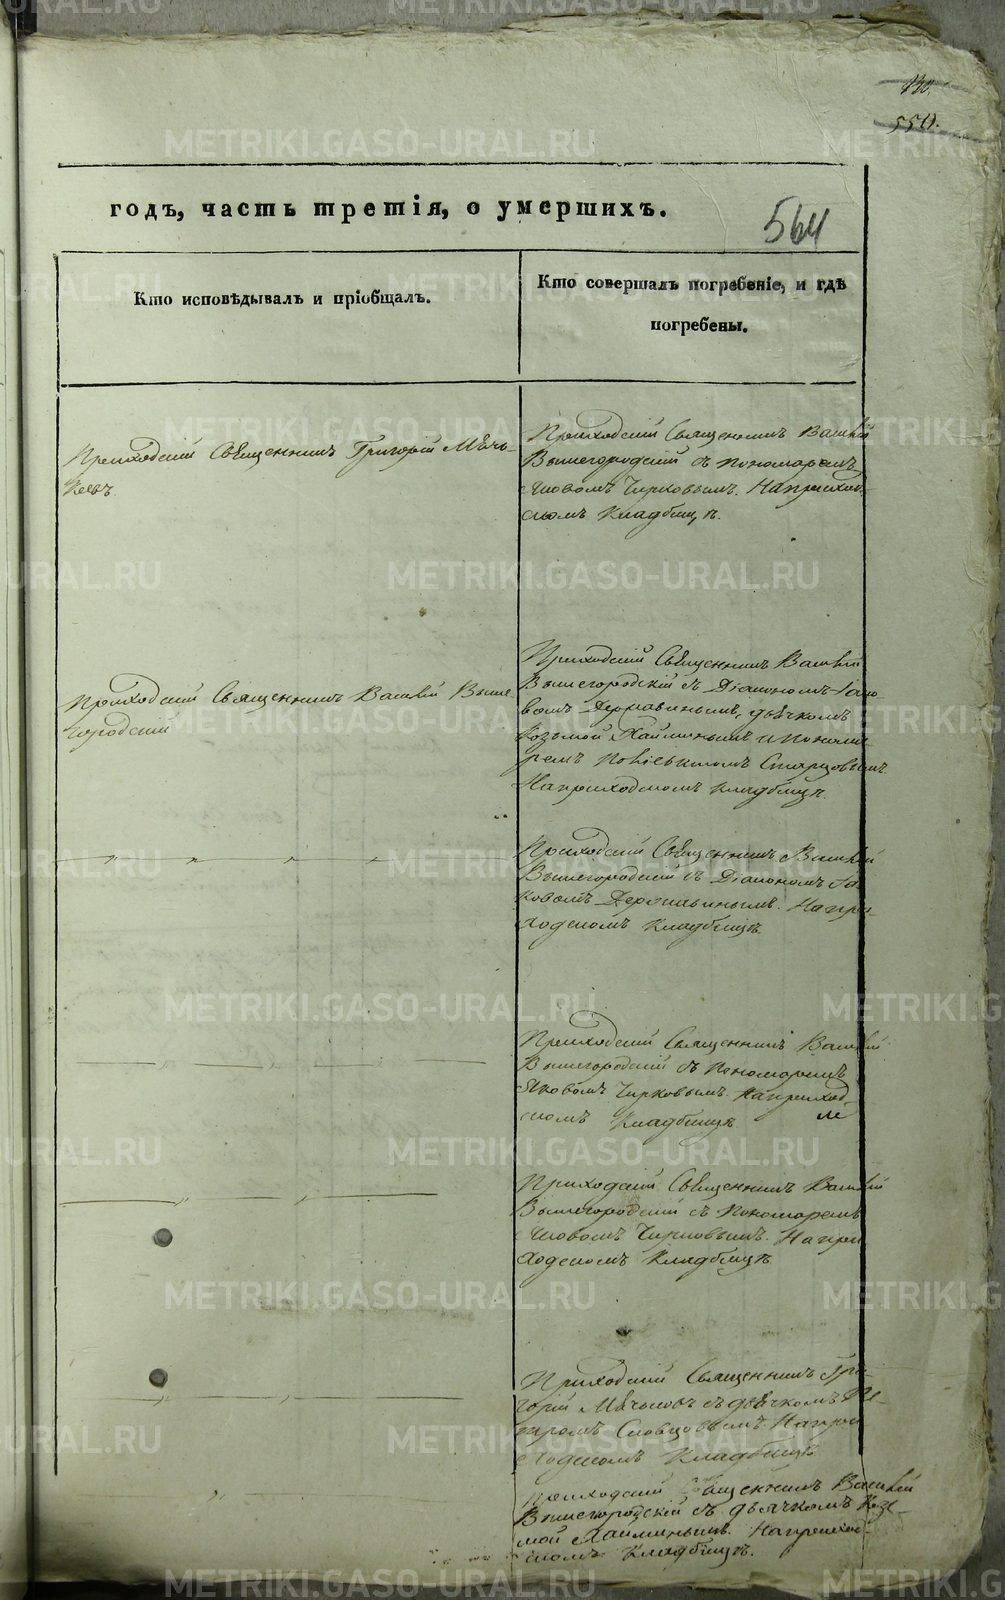 550.
годъ, часть третія, о умершихъ.
564
Кто исповѣдывалъ и пріобщалъ.
Кто совершалъ погребеніе, и гдѣ
погребены.
Приходскій Священникъ Григорій
Приходскій Священникъ Василій
Вышегородскій съ пономаремъ
Яковомъ Чирковымъ. На приход-
скомъ Кладбищѣ.
Приходскій Священникъ Василій Выше
городскій
Приходскій Священникъ Василій
Вышегородскій съ Діакономъ Іако-
вомъ Державинымъ, дьячкомъ
Козьмой Хайминымъ и Понома-
ремъ Старцовымъ.
На приходскомъ кладбищѣ.
Приходскій Священникъ Василій
Вышегородскій съ Діакономъ Іа
ковомъ Державинымъ. На при-
ходскомъ Кладбищѣ.
Приходскій Священникъ Василій
Вышегородскій съ Пономаремъ
Яковомъ Чирковымъ. На приход-
скомъ Кладбищѣ
Приходскій Священникъ Василій
Вышегородскій съ Пономаремъ
Яковомъ Чирковымъ. На при
ходскомъ Кладбищѣ.
Приходскій Священникъ Гри-
горій съ дьячкомъ Пе-
тромъ Словцовымъ. На при
ходскомъ Кладбищѣ
Приходскій Священникъ Василій
Вышегородскій съ дьячкомъ Козь-
мой Хайминымъ. На приход-
скомъ Кладбищѣ.
METRIKI.GASO-URAL.RU